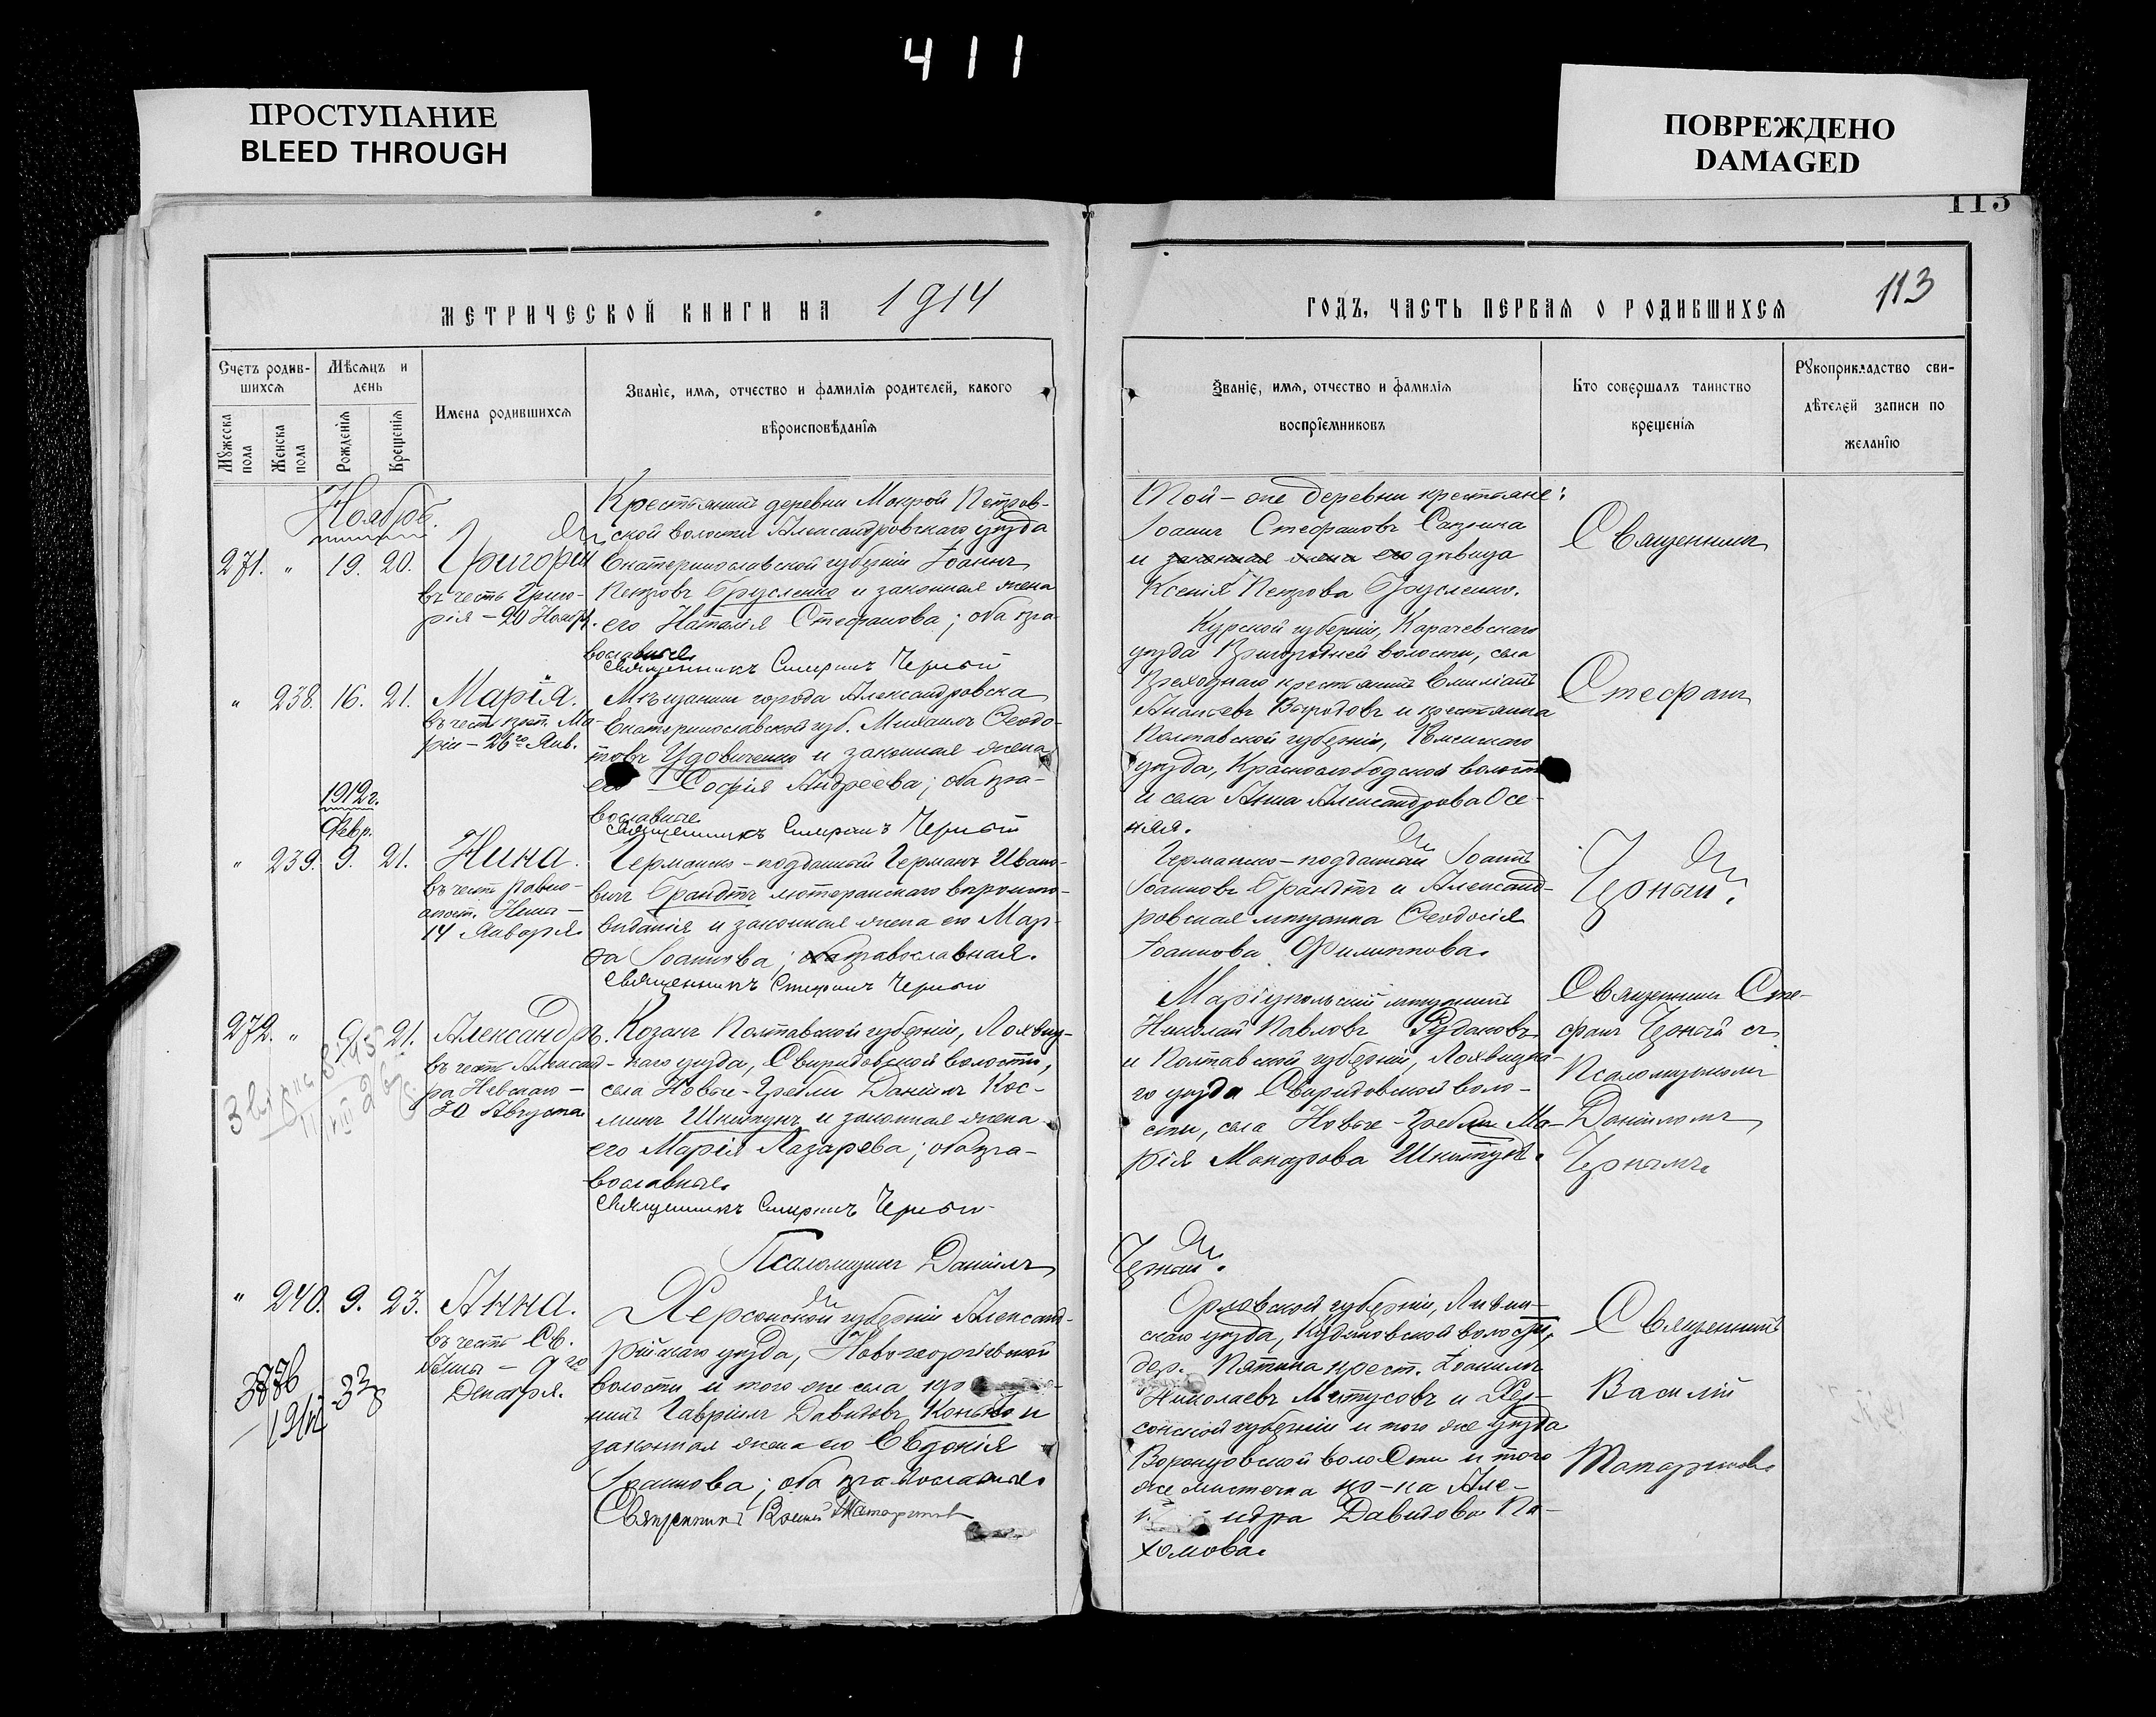 411
ПРОСТУПАНИЕ
BLEED THROUGH
ПОВРЕЖДЕНО
DAMAGED
113
МЕТРИЧЕСКОЙ КНИГИ НА 1914
ГОДЪ, ЧАСТЬ ПЕРВАЯ О РОДИВШИХСЯ
113
Счетъ родив-
шихся
Мужеска пола
Женска пола
Мѣсяцъ и
день
Рожденія
Крещенія
Имена родившихся
Званіе, имя, отчество и фамилія родителей, какого
вѣроисповѣданія
Званіе, имя, отчество и фамилія
воспріемниковъ
Кто совершалъ таинство
крещенія
Рукоприкладство сви-
дѣтелей записи по
желанію
Ноябрь.
271. " 19. 20. Григорій
въ честь Григо-
рія – 20 Ноябр.
Крестьянинъ деревни Мокрой Петров-
ской волости Александровскаго уѣзда
Екатеринославской губерніи Іоаннъ
Петровъ Брусленко и законная жена
его Наталія Стефанова; оба пра-
вославные.
Священникъ Стефанъ Черный
Той-же деревни крестьяне:
Іоаннъ Стефановъ
и законная жена его дѣвица
Ксенія Петрова Брусленко.
Священникъ
" 238. 16. 21. Марія.
въ честь преп. Ма-
ріи – 26го Янв.
Мѣщанинъ города Александровска
Екатеринославской губ. Михаилъ Ѳеодо-
товъ Удовиченко и законная жена
его Софія Андреева; оба пра-
вославные
Священникъ Стефанъ Черный
Курской губерніи, Карачевскаго
уѣзда Пригородней волости, села
крестьянинъ Емиліанъ
и крестьянка
Полтавской губерніи, Роменскаго
уѣзда, Краснослободской волости
и села Анна Александрова Осе-
няя.
Стефанъ
1912 г.
Февр.
" 239. 9. 21. Нина.
въ честь равно-
апост. Нины –
14 Января.
Германско-подданный Германъ Ивано-
вичъ Брандтъ лютеранскаго вѣроиспо-
вѣданія и законная жена его Мар-
ѳа Іоаннова; православная.
Священникъ Стефанъ Черный
Германско-подданный Іоаннъ
Іоанновъ Брандтъ и Александ-
ровская мѣщанка Ѳеодосія
Іоаннова Филиппова.
Черный.
272. " 9. 21. Александръ.
въ честь Александ-
ра Невскаго –
30 Августа
Козакъ Полтавской губерніи, Лохвиц-
каго уѣзда, Свиридовской волости,
села Новые-Гребли Даніилъ Кос-
минъ Шкитунъ и законная жена
его Марія Лазарева; оба пра-
вославные.
Священникъ Стефанъ Черный
Псаломщикъ Даніилъ
Черный.
Маріупольскій мѣщанинъ
Николай Павловъ Рудаковъ
и Полтавской губерніи, Лохвицка-
го уѣзда Свиридовской воло-
сти, села Новые-Гребли Ма-
рія Макарова Шкитунъ.
Священникъ Сте-
фанъ Черный съ
Псаломщикомъ
Даніиломъ
Чернымъ.
" 240. 9. 23. Анна.
въ честь Св.
Анны – 9го
Декабря.
Херсонской губерніи Александ-
рійскаго уѣзда, Новогеоргіевской
волости и того же села
нинъ Гавріилъ Давидовъ и
законная жена его Евдокія
Іоаннова; оба православные
Священникъ Василій Татариновъ
Орловской губерніи, Ливен-
скаго уѣзда, волости,
дер. крест. Іоаннъ
Николаевъ и Хер-
сонской губерніи и того же уѣзда
Воронцовской волости и того
же мѣстечка кр-ка Але-
ндра Давидова Па-
хомова.
Священникъ
Василій
Татариновъ.